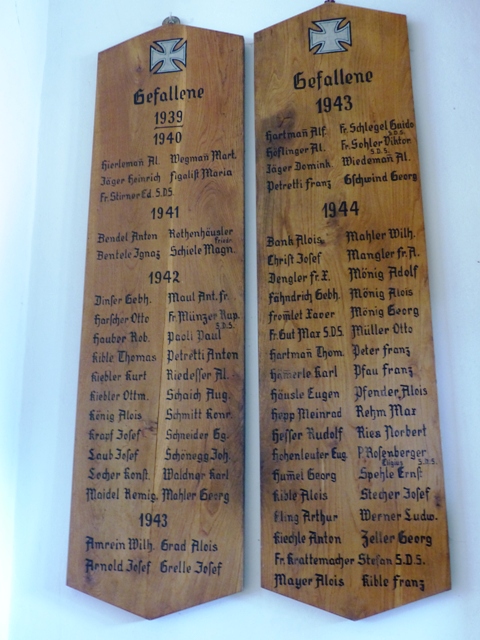 Gefallene
1939
1940
Hierleman̄ Al. Wegman̄ Mart.
Jäger Heinrich Figolist Maria
Fr. Stirner Ed. S.D.S.
1941
Bendel Anton Rothenhäusler
Friedr.
Bentele Ignaz Schiele Magn.
1942
Dinser Gebh. Maul Ant. fr.
Harscher Otto Fr. Münzer Rup.
S.D.S.
Hauber Rob. Paoli Paul
Kible Thomas Petretti Anton
Kiebler Kurt Riedesser Al.
Kiebler Ottm. Schaich Aug.
König Alois Schmitt Konr.
Krapf Josef Schneider Gg.
Laub Josef Schönegg Joh.
Locher Konst. Waldner Karl
Maidel Remig. Mahler Georg
1943
Amrein Wilh. Grad Alois
Arnold Josef Grelle Josef
Gefallene
1943
Hartman̄ Alf. Fr. Schlegel Guido
S.D.S.
Höflinger Al. Fr. Sehler Viktor
S.D.S.
Jäger Domink. Wiedeman̄ Al.
Petretti Franz Gschwind Georg
1944
Bank Alois Mahler Wilh.
Christ Josef Mangler Fr. A.
Dengler Fr. X. Mönig Adolf
Fähndrich Gebh. Mönig Alois
Fromlet Xaver Mönig Georg
Fr. Gut Max S.D.S. Müller Otto
Hartman Thom. Peter Franz
Hämerle Karl Pfau Franz
Häusle Eugen Pfender Alois
Hepp Meinrad Rehm Max
Hesser Rudolf Ries Norbert
Hohenleuter Eug. P. Rosenberger
Eligius S.D.S.
Hum̄el Georg Spehle Ernst
Kible Alois Stecher Josef
Kling Arthur Werner Ludw.
Kiechle Anton Zeller Georg
Fr. Krattemacher Stefan S.D.S.
Mayer Alois Kible Franz